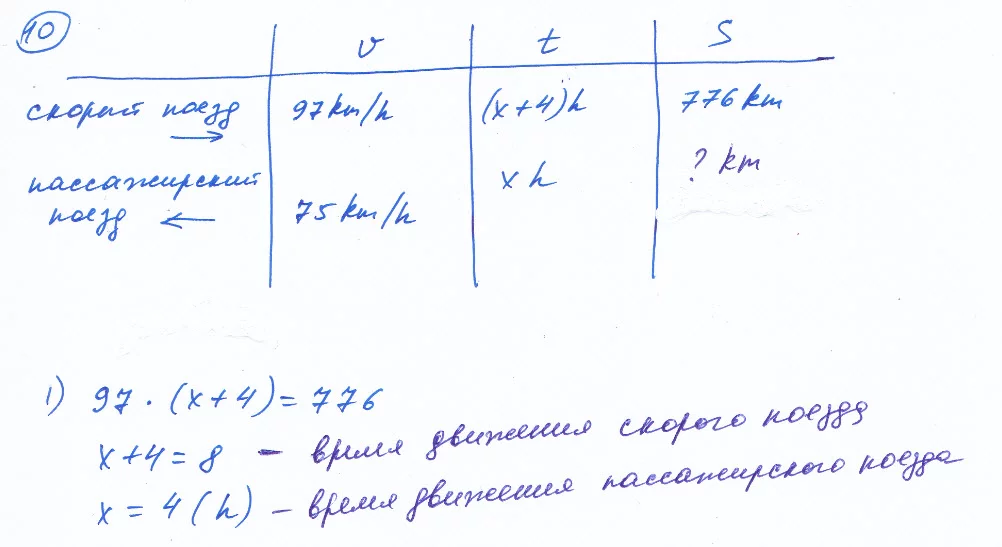 10
v t S
скорый поезд → 97 km/h (x+4)h 776 km
пассажирский поезд ← 75 km/h x h ? km
1) 97 · (x+4) = 776
x+4 = 8 - время движения скорого поезда
x = 4 (h) - время движения пассажирского поезда